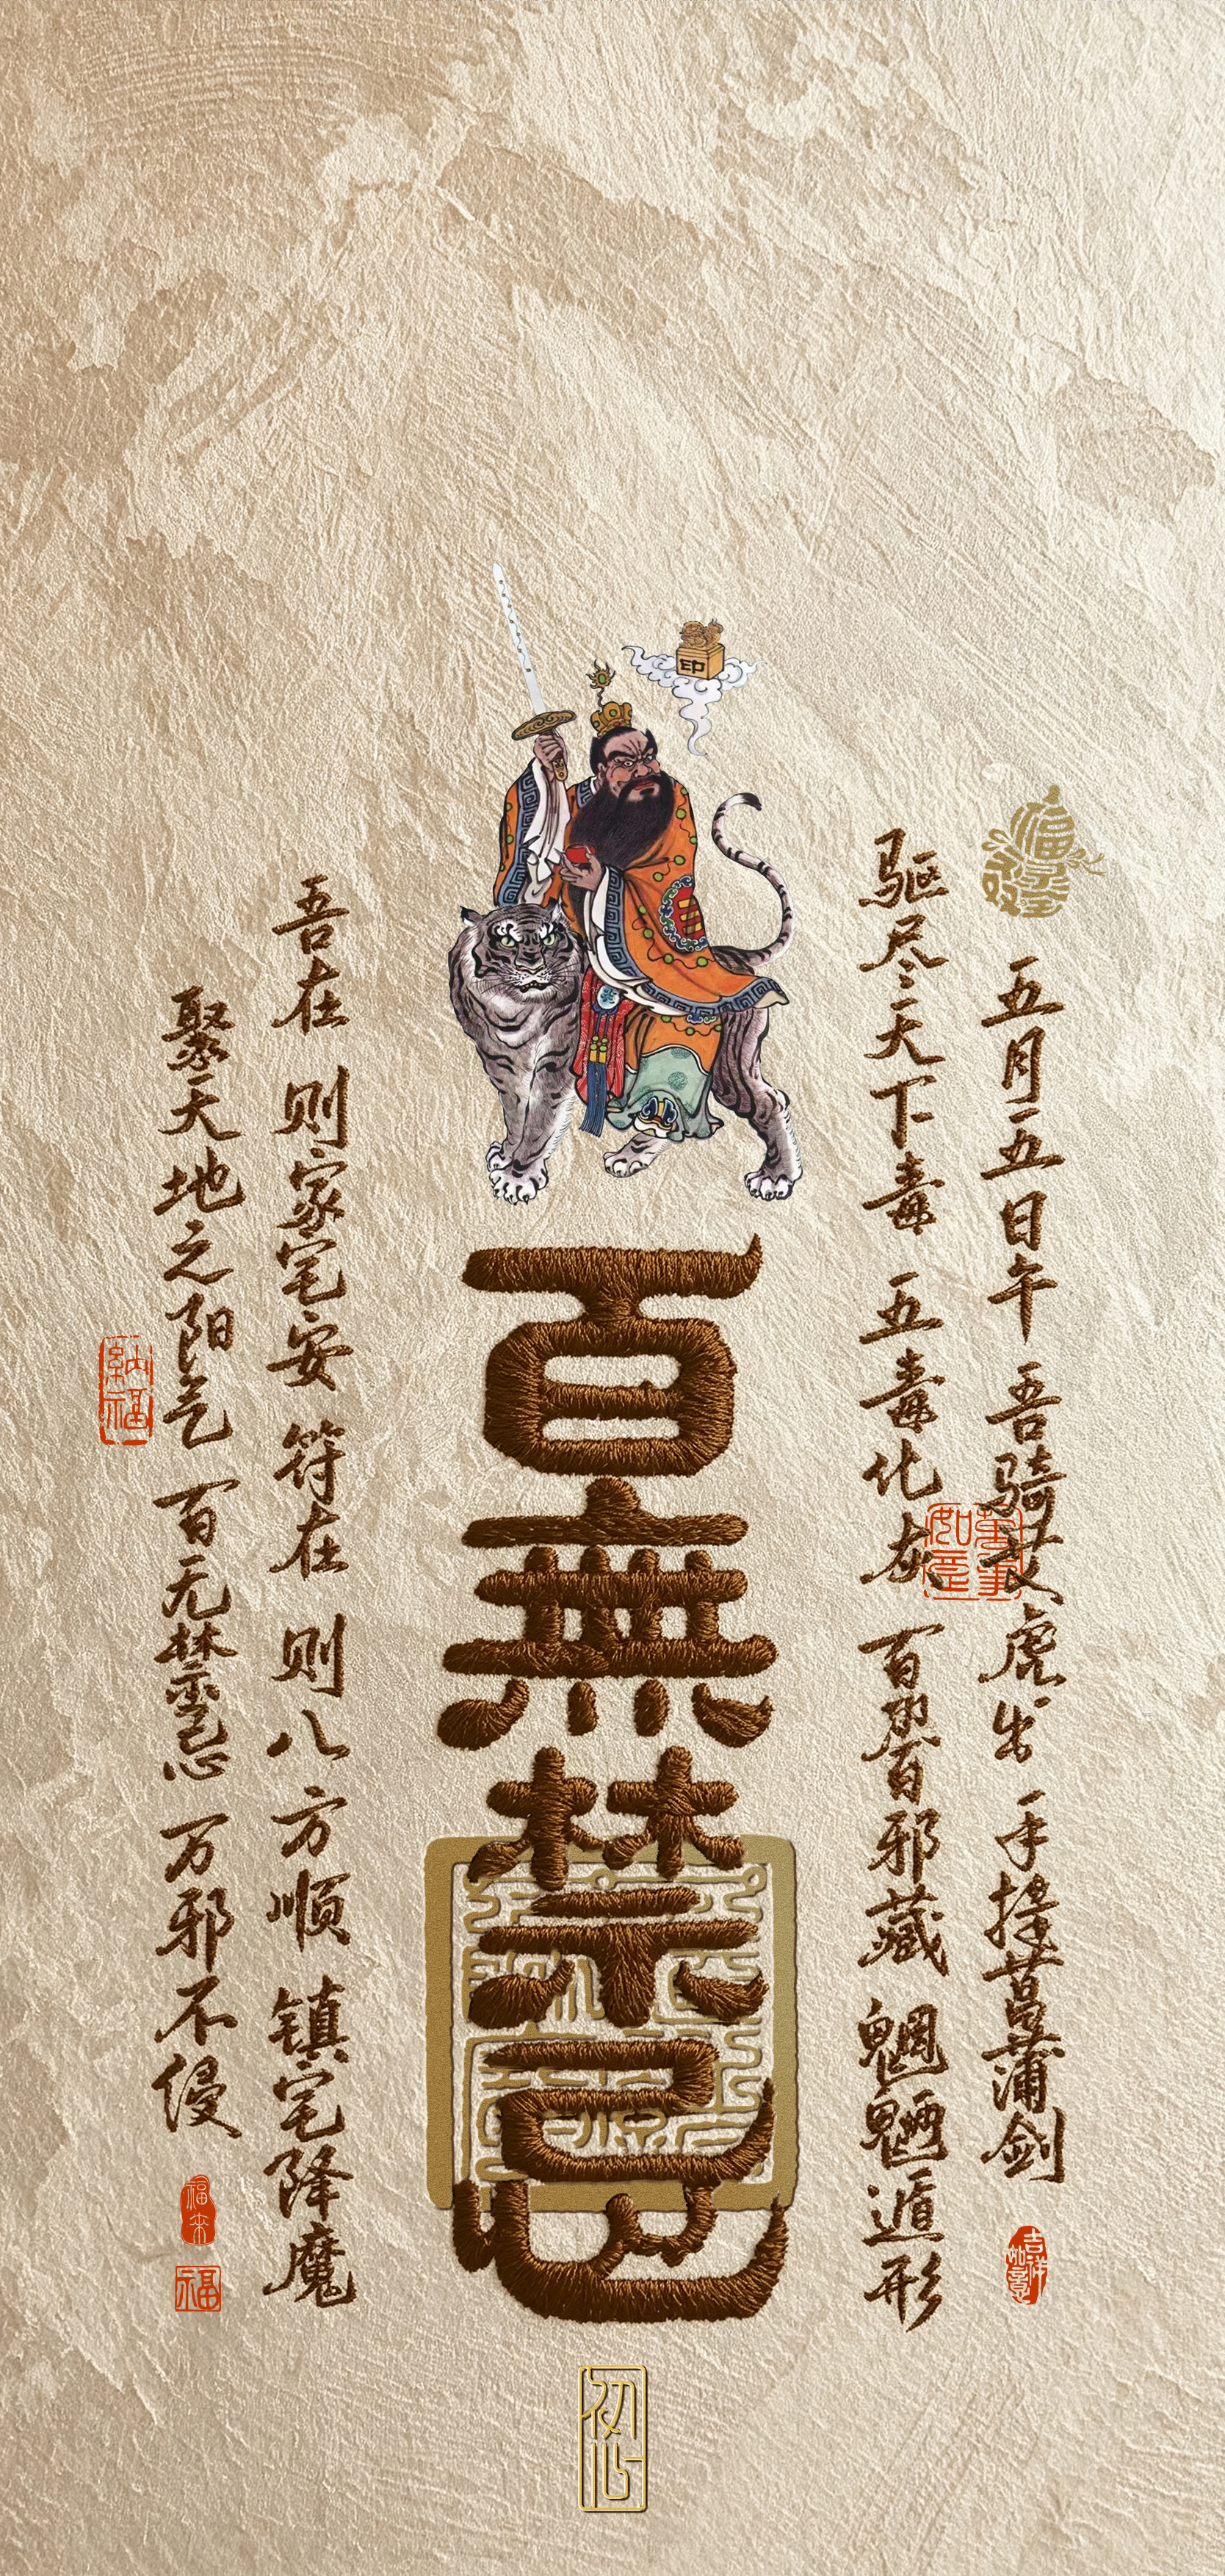 五月五日午 吾骑艾虎出 手持菖蒲剑
驱尽天下毒 五毒化灰 百邪藏 魍魉遁形
印
百無禁忌
吾在 则家宅安 符在 则八方顺 镇宅降魔
聚天地之阳气 百无禁忌 万邪不侵
納福
福来
福
吉祥如意
初心